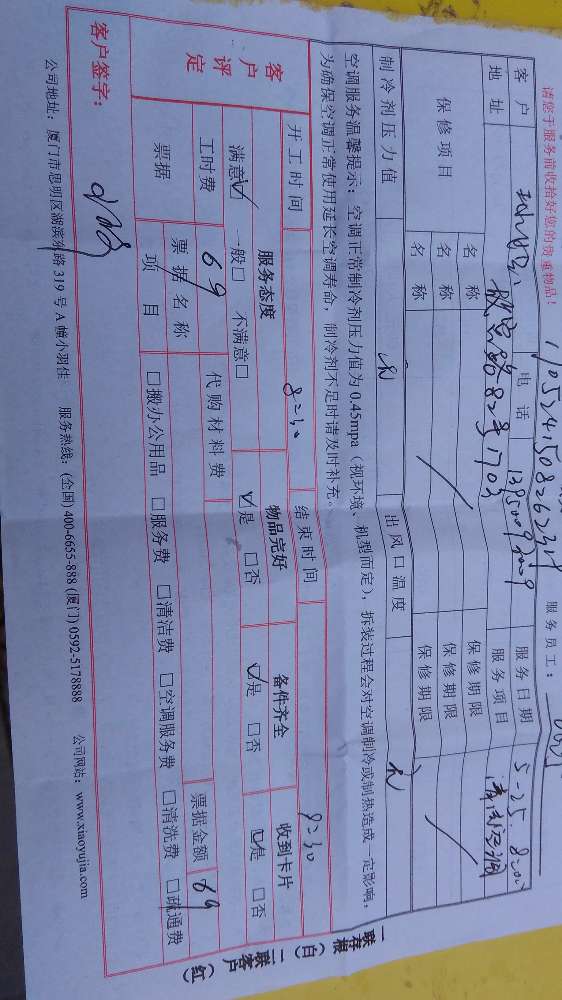 请您于服务前收拾好您的贵重物品！
服务员工：
客户 电话 服务日期 5-25 8:00
地址 82号1703 服务项目
保修项目 名称 保修期限
名称 保修期限
名称 保修期限
制冷剂压力值 出风口温度
空调服务温馨提示：空调正常制冷剂压力值为0.45mpa（视环境、机型而定），拆装过程会对空调制冷或制热造成一定影响，
为确保空调正常使用延长空调寿命，制冷剂不足时请及时补充。
开工时间 8:30 结束时间 9:30
客户评定 服务态度 物品完好 备件齐全 收到卡片
满意☑ 一般□ 不满意□ ☑是 □否 ☑是 □否 ☑是 □否
工时费 69 代购材料费 票据金额 69
票据 票据名称
项目 □搬办公用品 □服务费 □清洁费 □空调服务费 □清洗费 □疏通费
客户签字：
公司地址：厦门市思明区湖滨东路319号A幢小羽佳 服务热线：(全国) 400-6655-888 (厦门) 0592-5178888 公司网站：www.xiaoyujia.com
一联存根（白）二联客户（红）